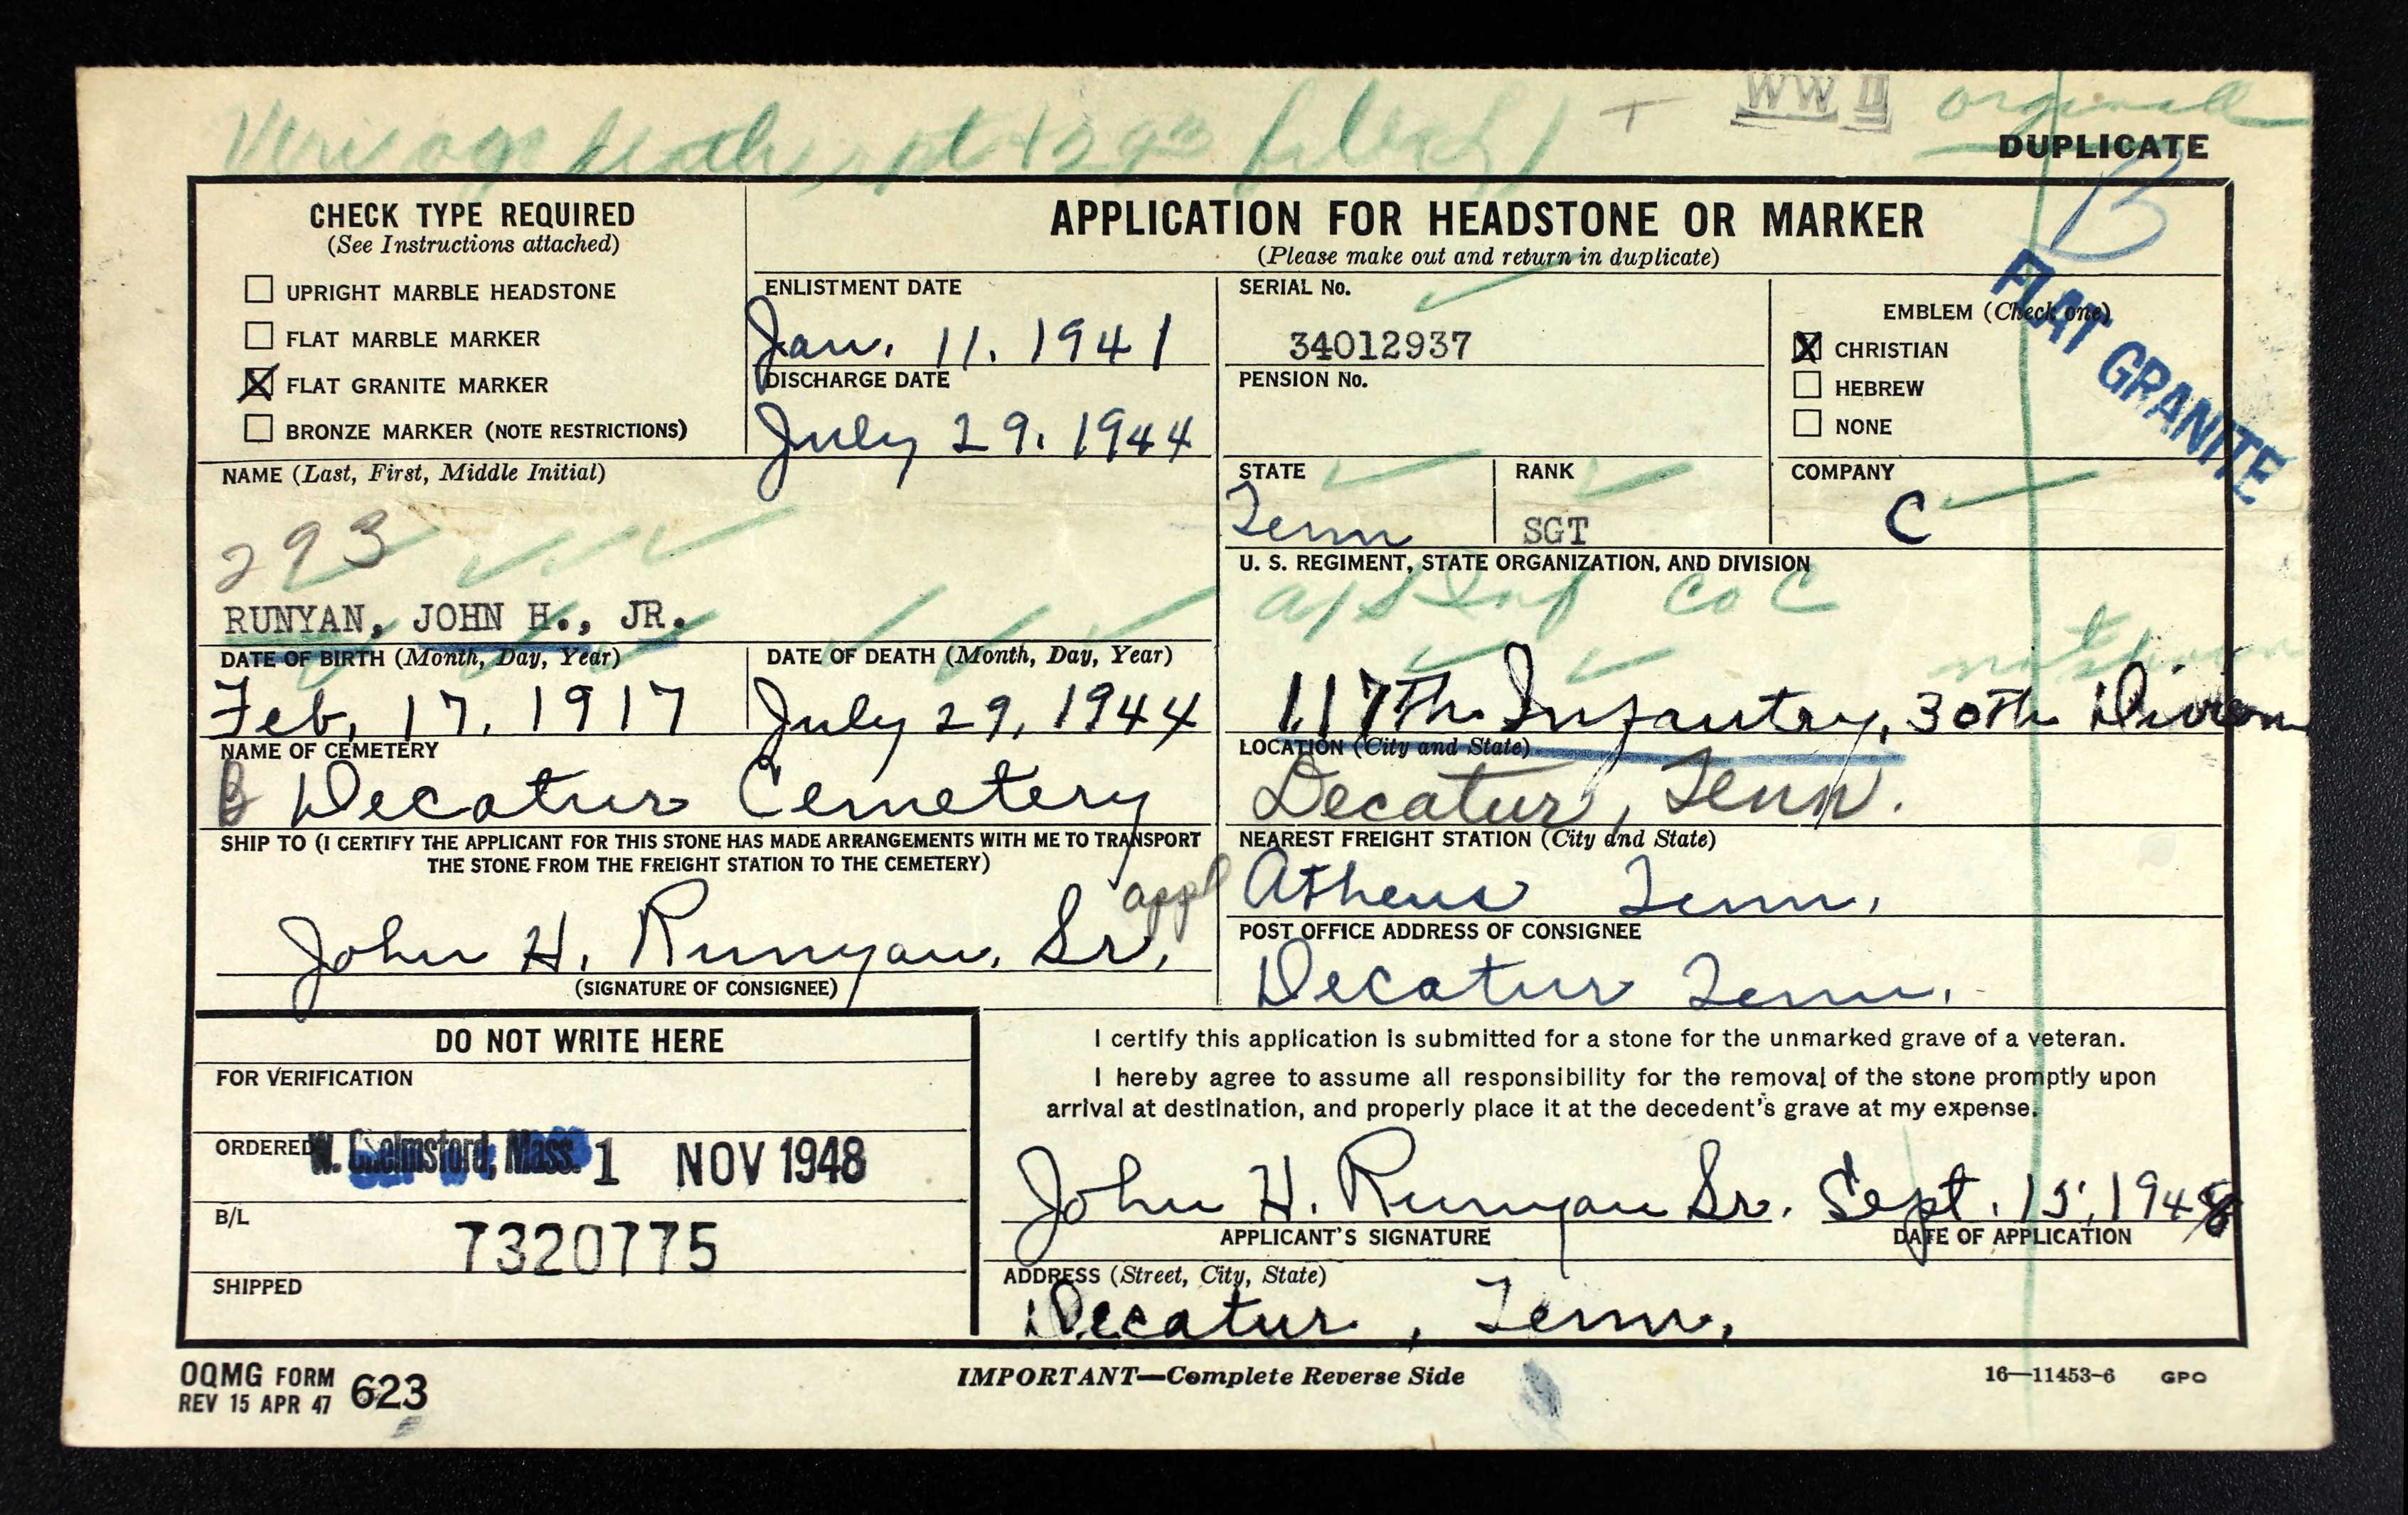 WW II orginall
DUPLICATE
B
FLAT GRANITE
CHECK TYPE REQUIRED
(See Instructions attached)
☐ UPRIGHT MARBLE HEADSTONE
☐ FLAT MARBLE MARKER
☒ FLAT GRANITE MARKER
☐ BRONZE MARKER (NOTE RESTRICTIONS)
APPLICATION FOR HEADSTONE OR MARKER
(Please make out and return in duplicate)
ENLISTMENT DATE
Jan. 11. 1941
DISCHARGE DATE
July 29. 1944
SERIAL No.
34012937
PENSION No.
EMBLEM (Check one)
☒ CHRISTIAN
☐ HEBREW
☐ NONE
NAME (Last, First, Middle Initial)
293
RUNYAN, JOHN H., JR.
STATE
Tenn
RANK
SGT
COMPANY
C
U. S. REGIMENT, STATE ORGANIZATION, AND DIVISION
Inf Co C
not shown
117Th Infantry, 30Th Divison
DATE OF BIRTH (Month, Day, Year)
Feb. 17. 1917
DATE OF DEATH (Month, Day, Year)
July 29, 1944
NAME OF CEMETERY
B Decatur Cemetery
LOCATION (City and State)
Decatur, Tenn.
SHIP TO (I CERTIFY THE APPLICANT FOR THIS STONE HAS MADE ARRANGEMENTS WITH ME TO TRANSPORT
THE STONE FROM THE FREIGHT STATION TO THE CEMETERY)
appl
John H. Runyan, Sr.
(SIGNATURE OF CONSIGNEE)
NEAREST FREIGHT STATION (City and State)
Athens Tenn.
POST OFFICE ADDRESS OF CONSIGNEE
Decatur Tenn.
DO NOT WRITE HERE
FOR VERIFICATION
ORDERED W. Chelmsford, Mass. 1 NOV 1948
B/L
7320775
SHIPPED
I certify this application is submitted for a stone for the unmarked grave of a veteran.
I hereby agree to assume all responsibility for the removal of the stone promptly upon
arrival at destination, and properly place it at the decedent's grave at my expense.
John H. Runyan Sr. Sept. 15, 1948
APPLICANT'S SIGNATURE
DATE OF APPLICATION
ADDRESS (Street, City, State)
Decatur, Tenn.
OQMG FORM 623
REV 15 APR 47
IMPORTANT—Complete Reverse Side
16—11453-6 GPO